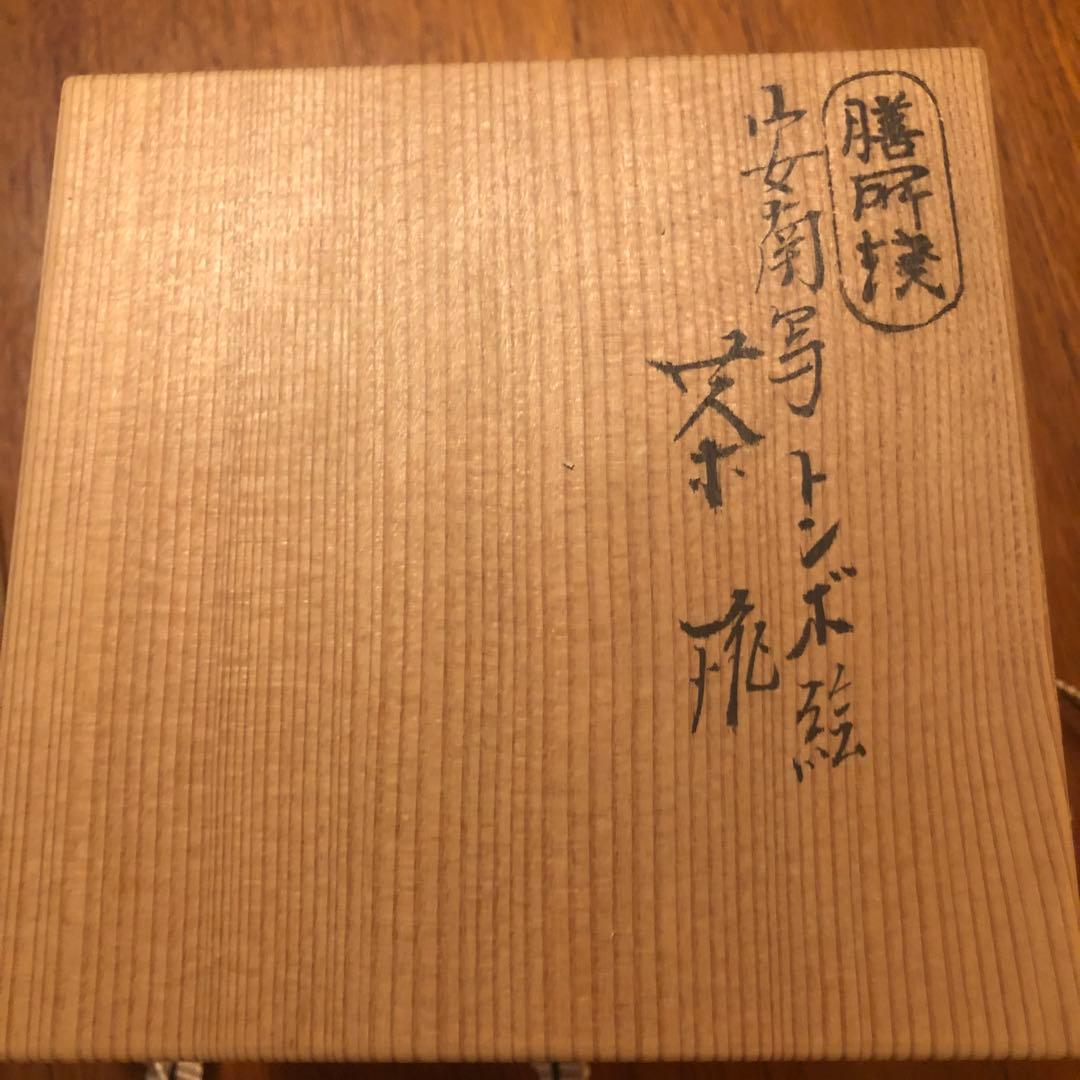 膳所焼
安南写トンボ絵
茶碗